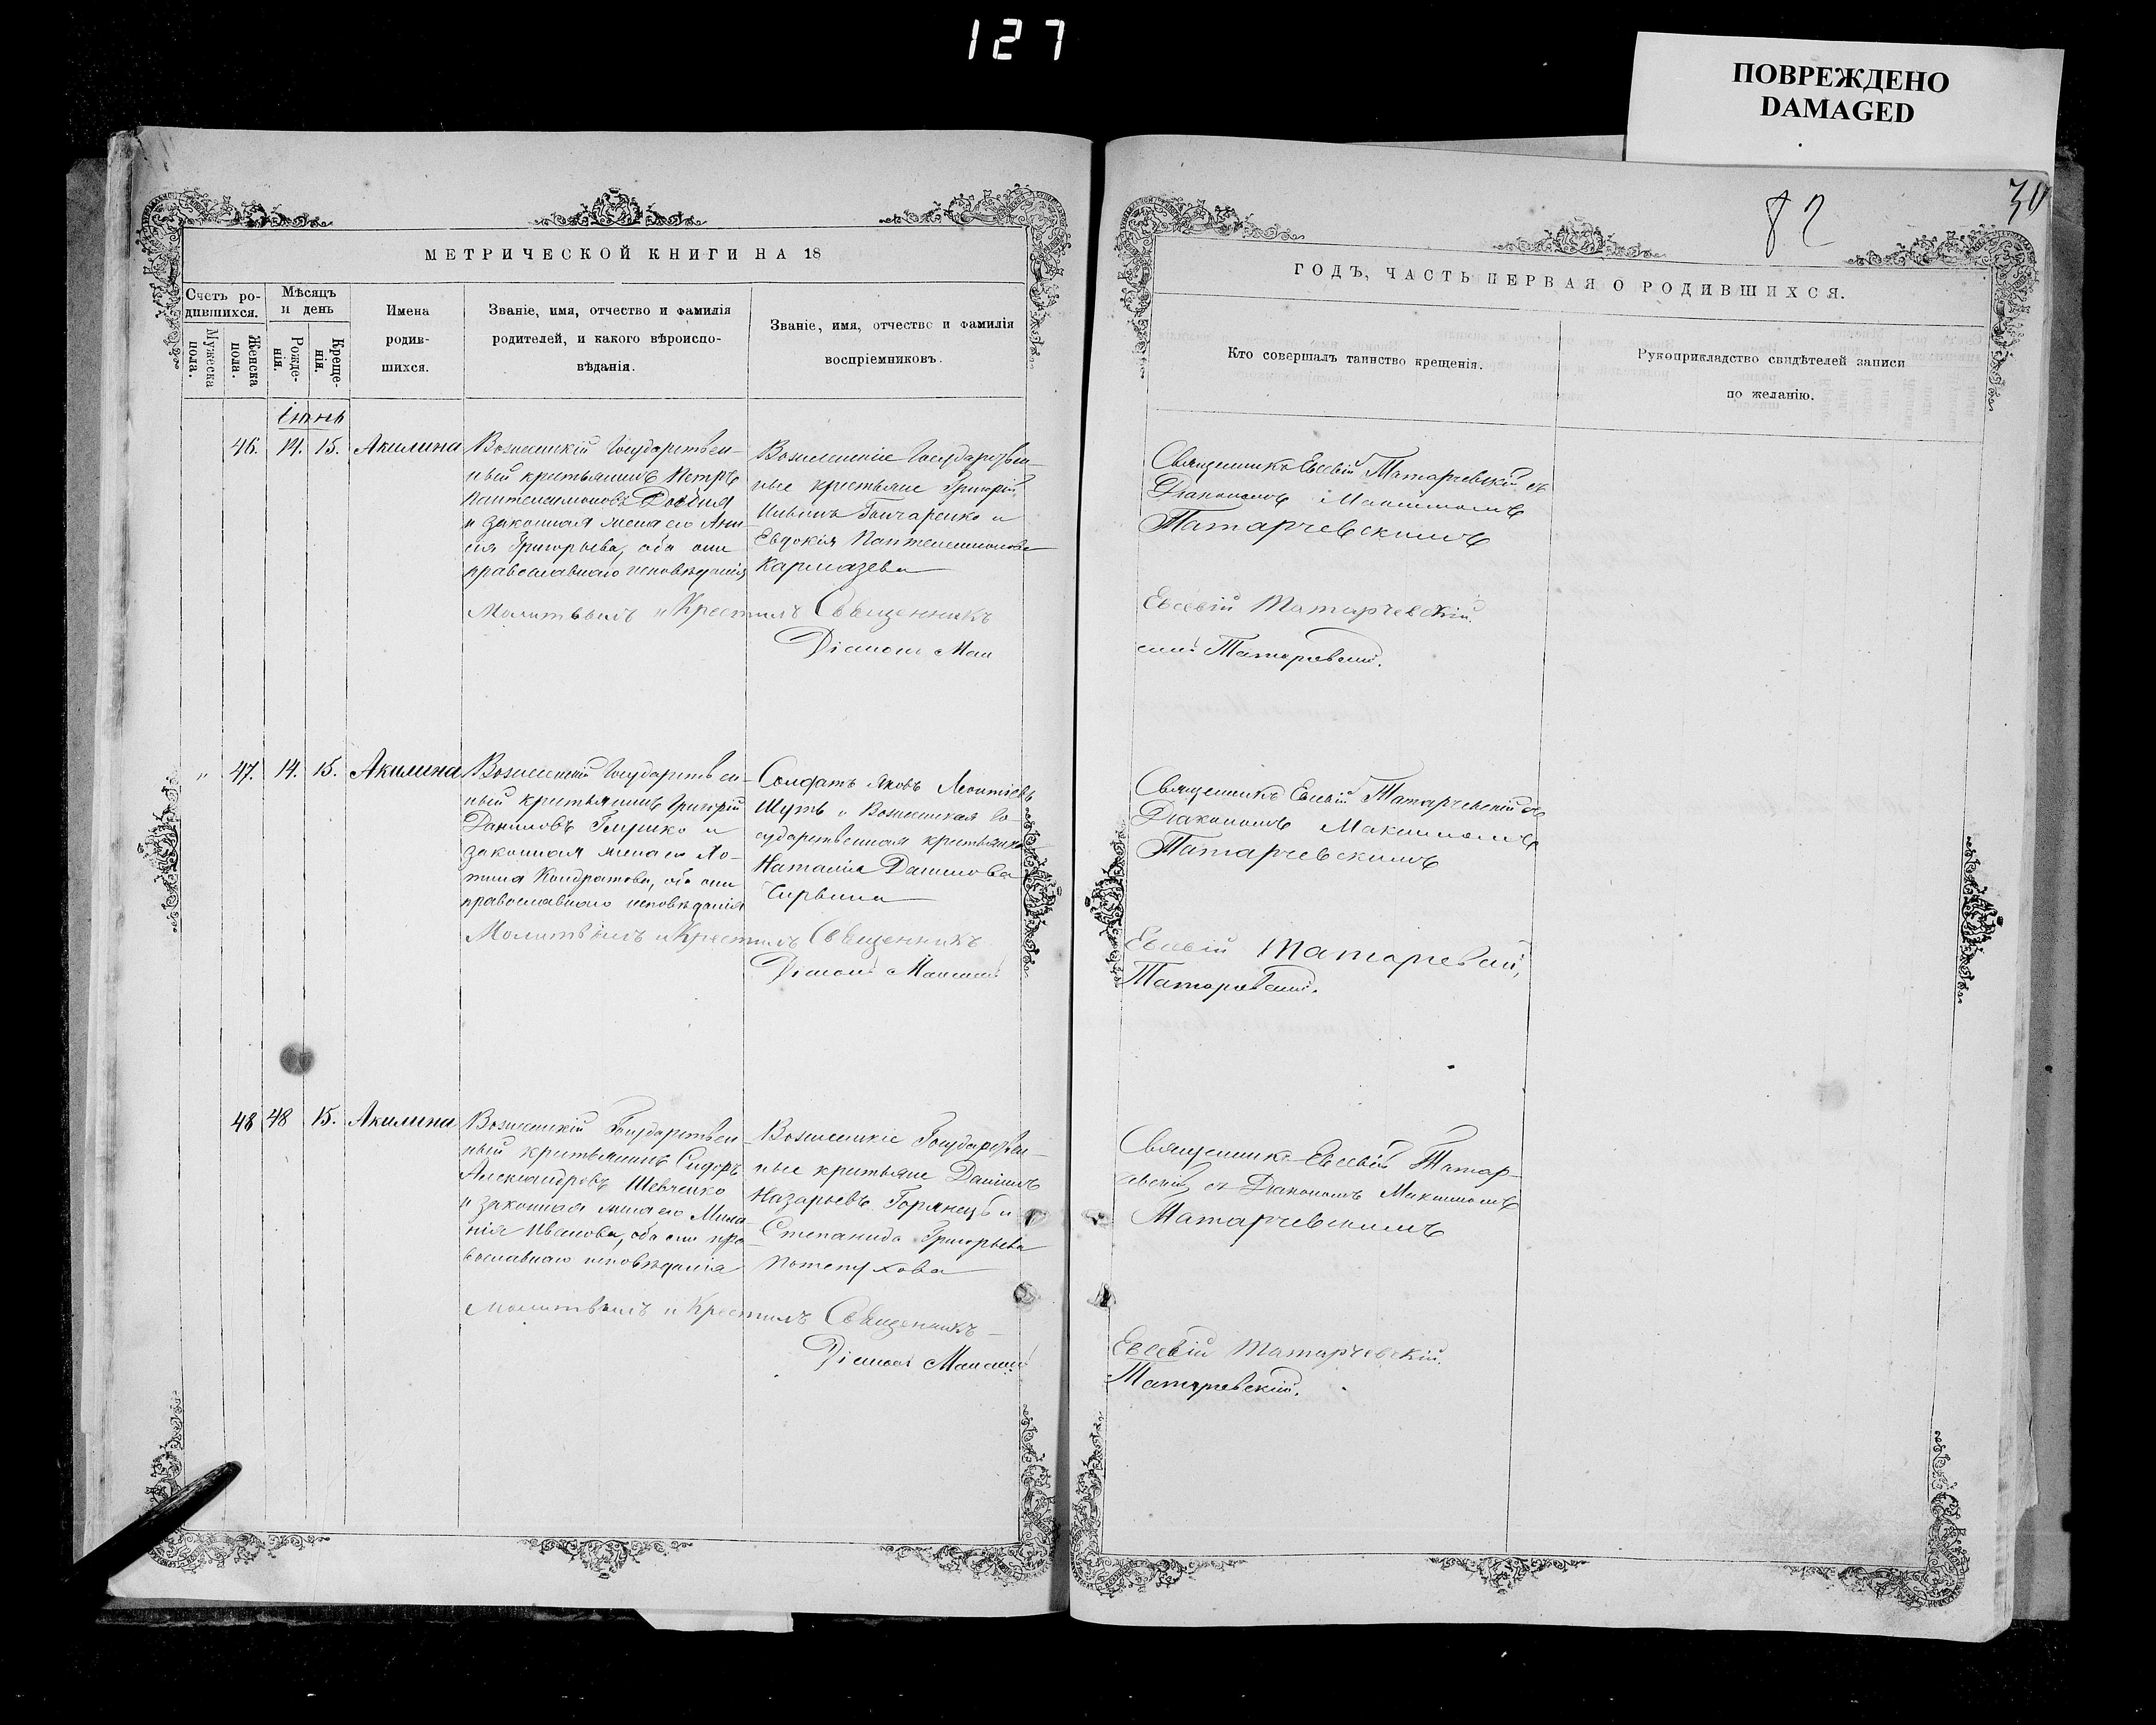 127
ПОВРЕЖДЕНО
DAMAGED
82
МЕТРИЧЕСКОЙ КНИГИ НА 18
Счетъ ро-
дившихся.
Мужеска
пола.
Женска
пола.
Мѣсяцъ
и день
Рожде-
нія.
Креще-
нія.
Имена
родив-
шихся.
Званіе, имя, отчество и фамилія
родителей, и какого вѣроиспо-
вѣданія.
Званіе, имя, отчество и фамилія
воспріемниковъ.
Іюнь
46. 14. 15. Акилина
Государствен-
ный крестьянинъ Петръ
Пантелимоновъ
и законная жена его
Григорьева, оба они
православнаго исповѣданія
Государствен-
ные крестьяне Григорій
Гончаренко и
Евдокія Пантелеимонова
Кармазева
Молитвилъ и Крестилъ Священникъ
Діаконъ Мак
„ 47. 14. 15. Акилина
Государствен-
ный крестьянинъ Григорій
Даниловъ и
законная жена его
Кондратова, оба они
православнаго исповѣданія
Солдатъ Яковъ Леонтіевъ
Шутъ и Го-
сударственная крестьянка
Наталія Данилова
Молитвилъ и Крестилъ Священникъ
Діаконъ Максимъ
48 48 15. Акилина
Государствен-
ный крестьянинъ Сидоръ
Александровъ Шевченко
и законная жена его Мила-
нія Иванова, оба они пра-
вославнаго исповѣданія
Государствен-
ные крестьяне Даніилъ
Назарьевъ Горянецъ и
Степанида Григорьева
Потепухова
Молитвилъ и Крестилъ Священникъ
Діаконъ Максимъ
ГОДЪ, ЧАСТЬ ПЕРВАЯ О РОДИВШИХСЯ.
Кто совершалъ таинство крещенія.
Рукоприкладство свидѣтелей записи
по желанію.
Священникъ Евсевій Татарчевскій съ
Діакономъ Максимомъ
Татарчевскимъ
Евсевій Татарчевскій.
симъ Татарчевскій.
Священникъ Евсевій Татарчевскій съ
Діакономъ Максимомъ
Татарчевскимъ
Евсевій Татарчевскій,
Татарчевскій.
Священникъ Евсевій Татар-
съ Діакономъ Максимомъ
Татарчевскимъ
Евсевій Татарчевскій.
Татарчевскій.